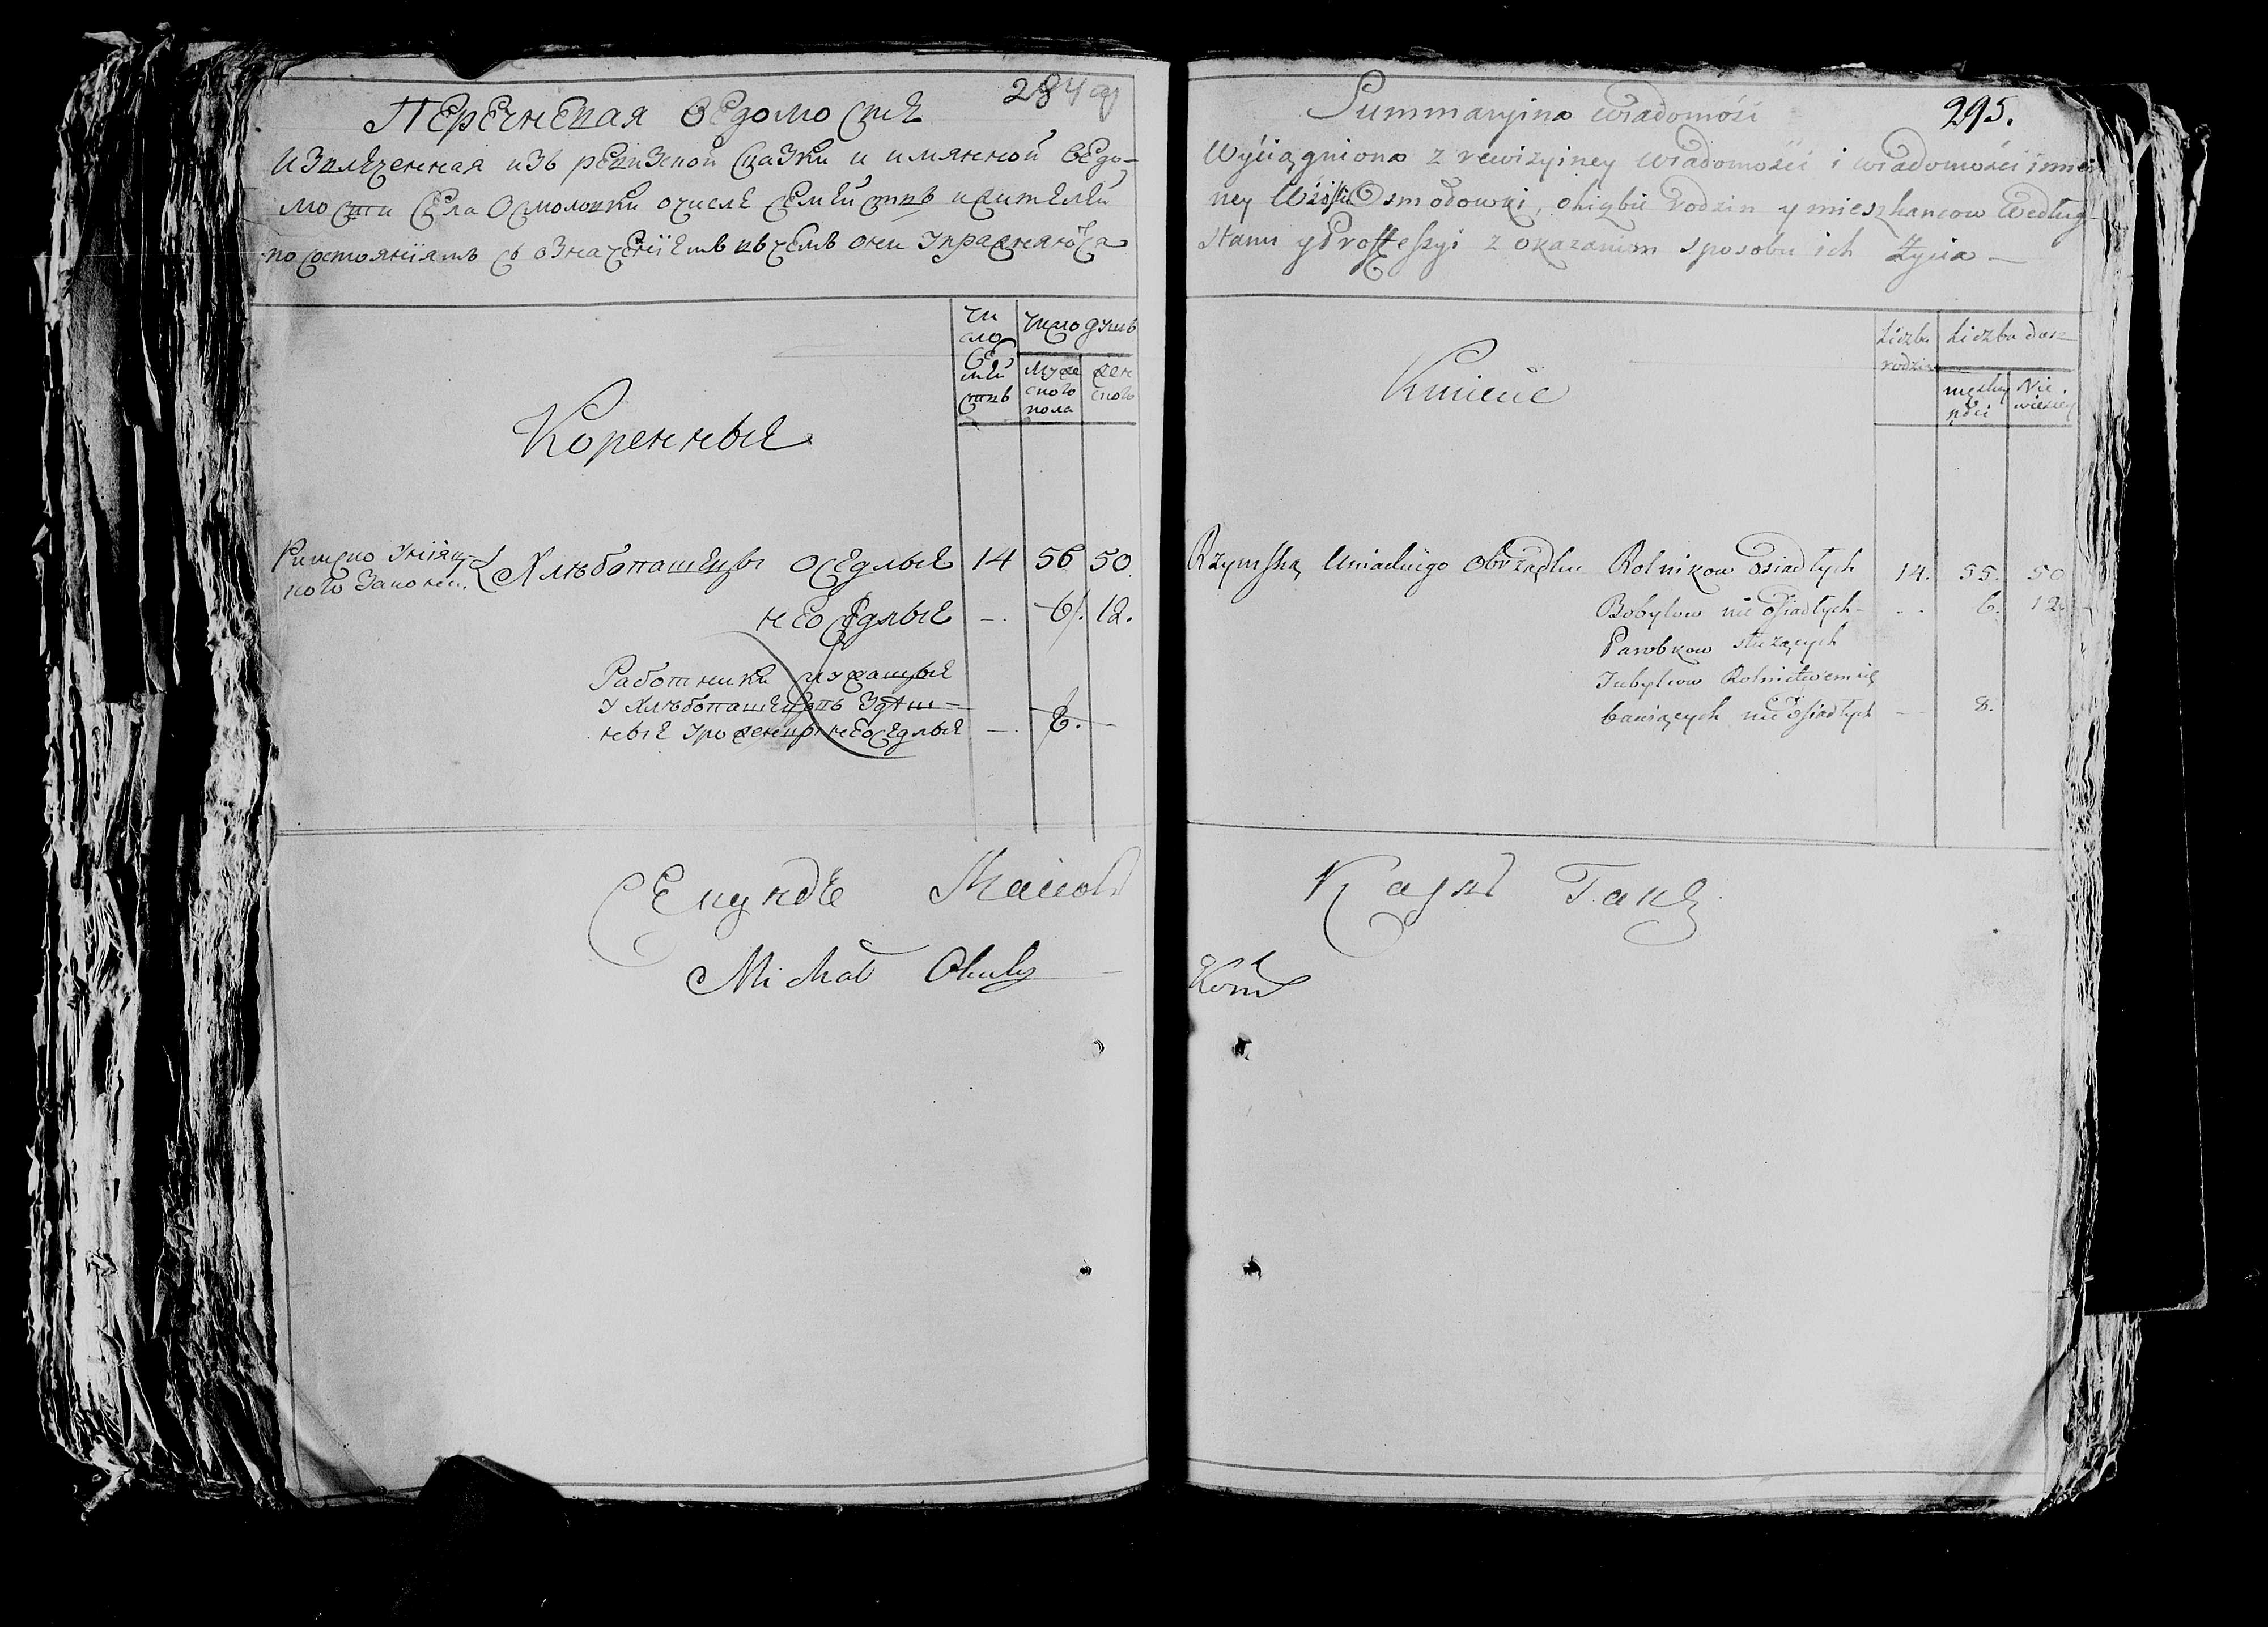 284 об
Перечневая ведомость
Извлеченная изъ ревизской сказки и имянной ведо-
мости села Осмоловки о числе семействъ и жителей
по состояніямъ съ означеніемъ въ чемъ они упражняются
Чи
сло
се
мей
ствъ
Число душъ
муже
ского
пола
жен
ского
Коренные
Римско Уніят-
ского Закона
Хлебопашцы оседлые 14 56 50.
не оседлые -. 6. 12.
Работники служащые
у хлебопашцовъ здеш-
ные уроженцы неоседлые -. 8. -
Секундъ
Michał
295.
Summaryina wiadomość
Wyciągniona z rewizyiney wiadomości i wiadomości imien
ney Wsi Osmołowki, o liczbie rodzin y mieszkancow według
stanu y Professyi z okazaniem sposobu ich życia —
Liczba
rodzin
Liczba dusz
męskiey
płci
Nie
wieściey
Kmiecie
Rzymsko Uniackiego Obrządku Rolnikow osiadłych 14. 55. 50
Bobylow nie osiadłych - - . 6. 12.
Parobkow służących
Tubylcow Rolnictwem się
bawiących nie osiadłych — 8.